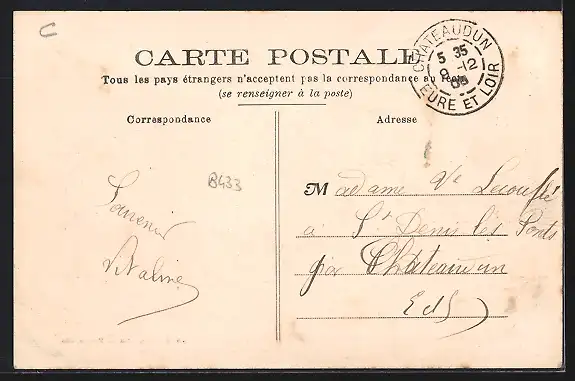 C
CARTE POSTALE
Tous les pays étrangers n'acceptent pas la correspondance au
(se renseigner à la poste)
CHATEAUDUN
5 35
9 -12
05
EURE ET LOIR
Correspondance
Adresse
B433
Souvenir
Madame Ve Lecouflé
à St Denis les Ponts
par Châteaudun
E &